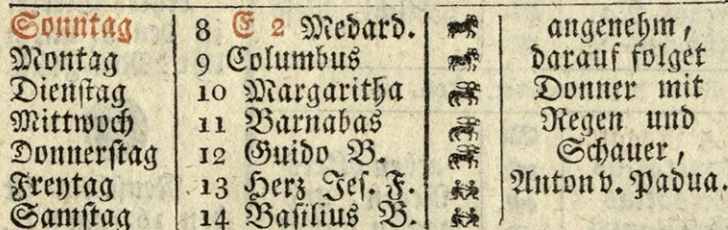 Sonntag 8 E 2 Medard. angenehm,
Montag 9 Columbus darauf folget
Dienſtag 10 Margaritha Donner mit
Mittwoch 11 Barnabas Regen und
Donnerſtag 12 Guido B. Schauer,
Freytag 13 Herz Jeſ. F. Anton v. Padua.
Samſtag 14 Baſilius B.